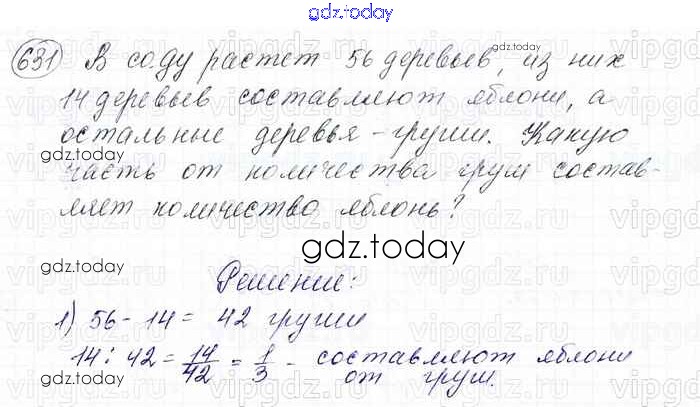 gdz.today
631 В соду растет 56 деревьев, из них
14 деревьев составляют яблони, а
остальные деревья - груши. Какую
часть от количества груш состав-
ляет количество яблонь?
gdz.today
Решение:
1) 56 - 14 = 42 груши
14 : 42 = 14/42 = 1/3 - составляют яблони
от груш.